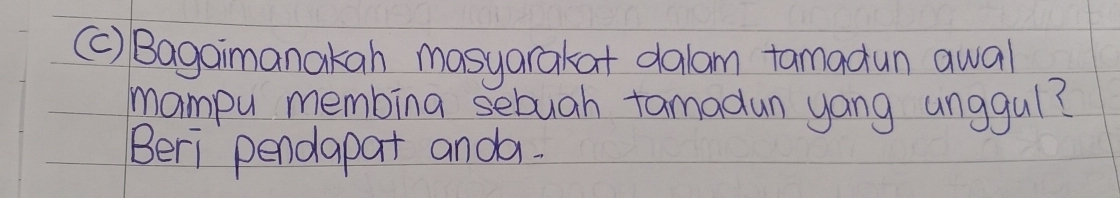 (c) Bagaimanakah masyarakat dalam tamadun awal
mampu membina sebuah tamadun yang unggul?
Beri pendapat anda.